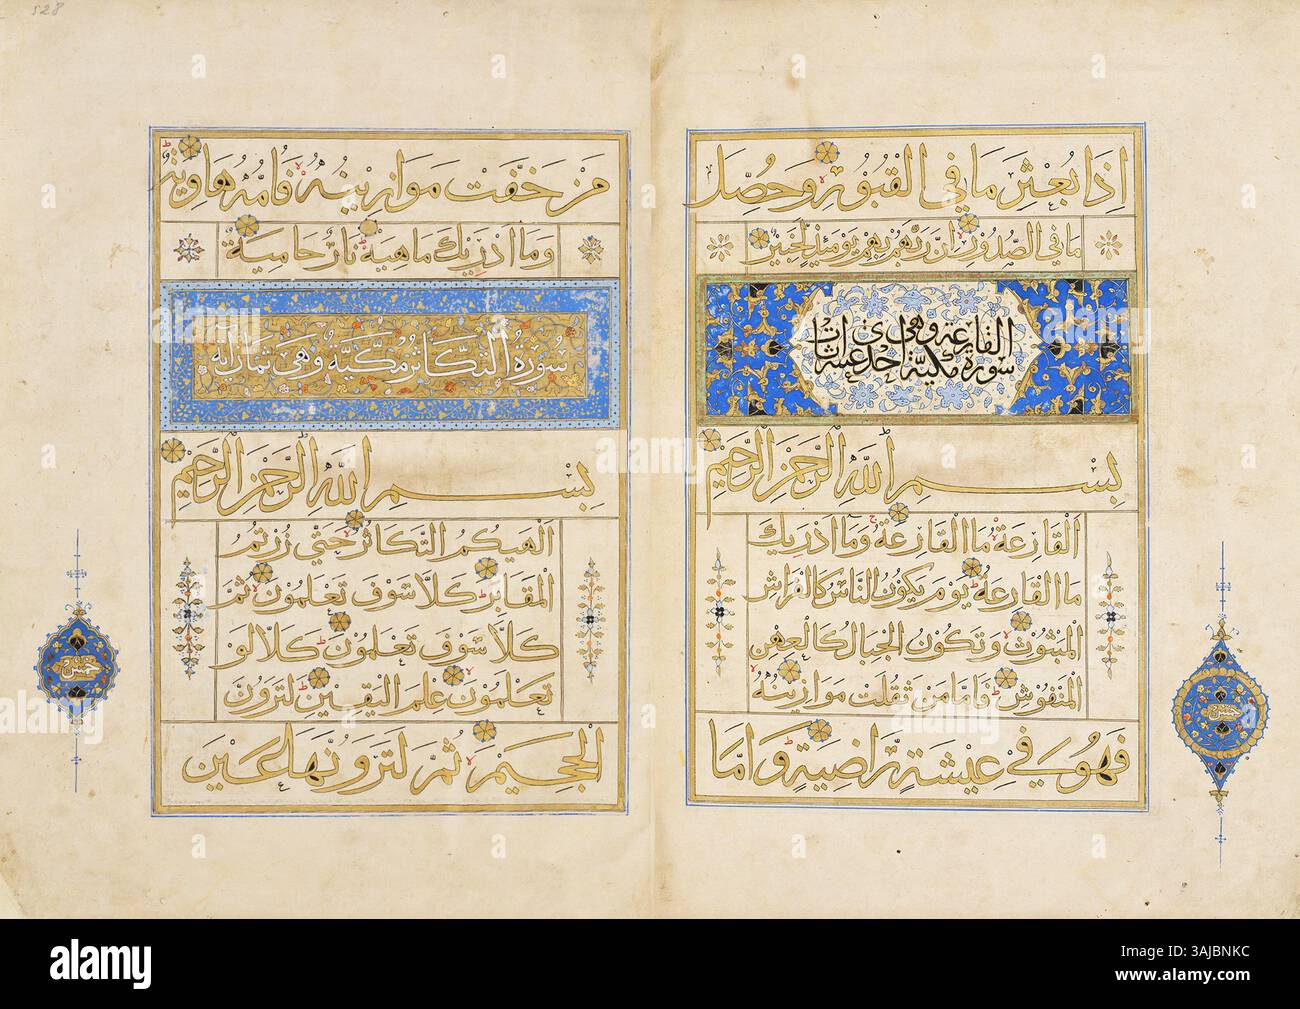 إذا بعثر ما في القبور وحصل
ما في الصدور إن ربهم بهم يومئذ لخبير
سورة القارعة وهي احدى عشرات
مكية
بسم الله الرحمن الرحيم
القارعة ما القارعة وما ادريك
ما القارعة يوم يكون الناس كالفراش
المبثوث وتكون الجبال كالعهن
المنفوش فاما من ثقلت موازينه
فهو في عيشة راضية واما
من خفت موازينه فامه هاوية
وما ادريك ما هية نار حامية
سورة التكاثر مكية وهي ثمان اية
بسم الله الرحمن الرحيم
الهيكم التكاثر حتى زرتم
المقابر كلا سوف تعلمون ثم
كلا سوف تعلمون كلا لو
تعلمون علم اليقين لترون
الجحيم ثم لترونها عين
528
a
alamy
Image ID: 3AJBNKC
www.alamy.com